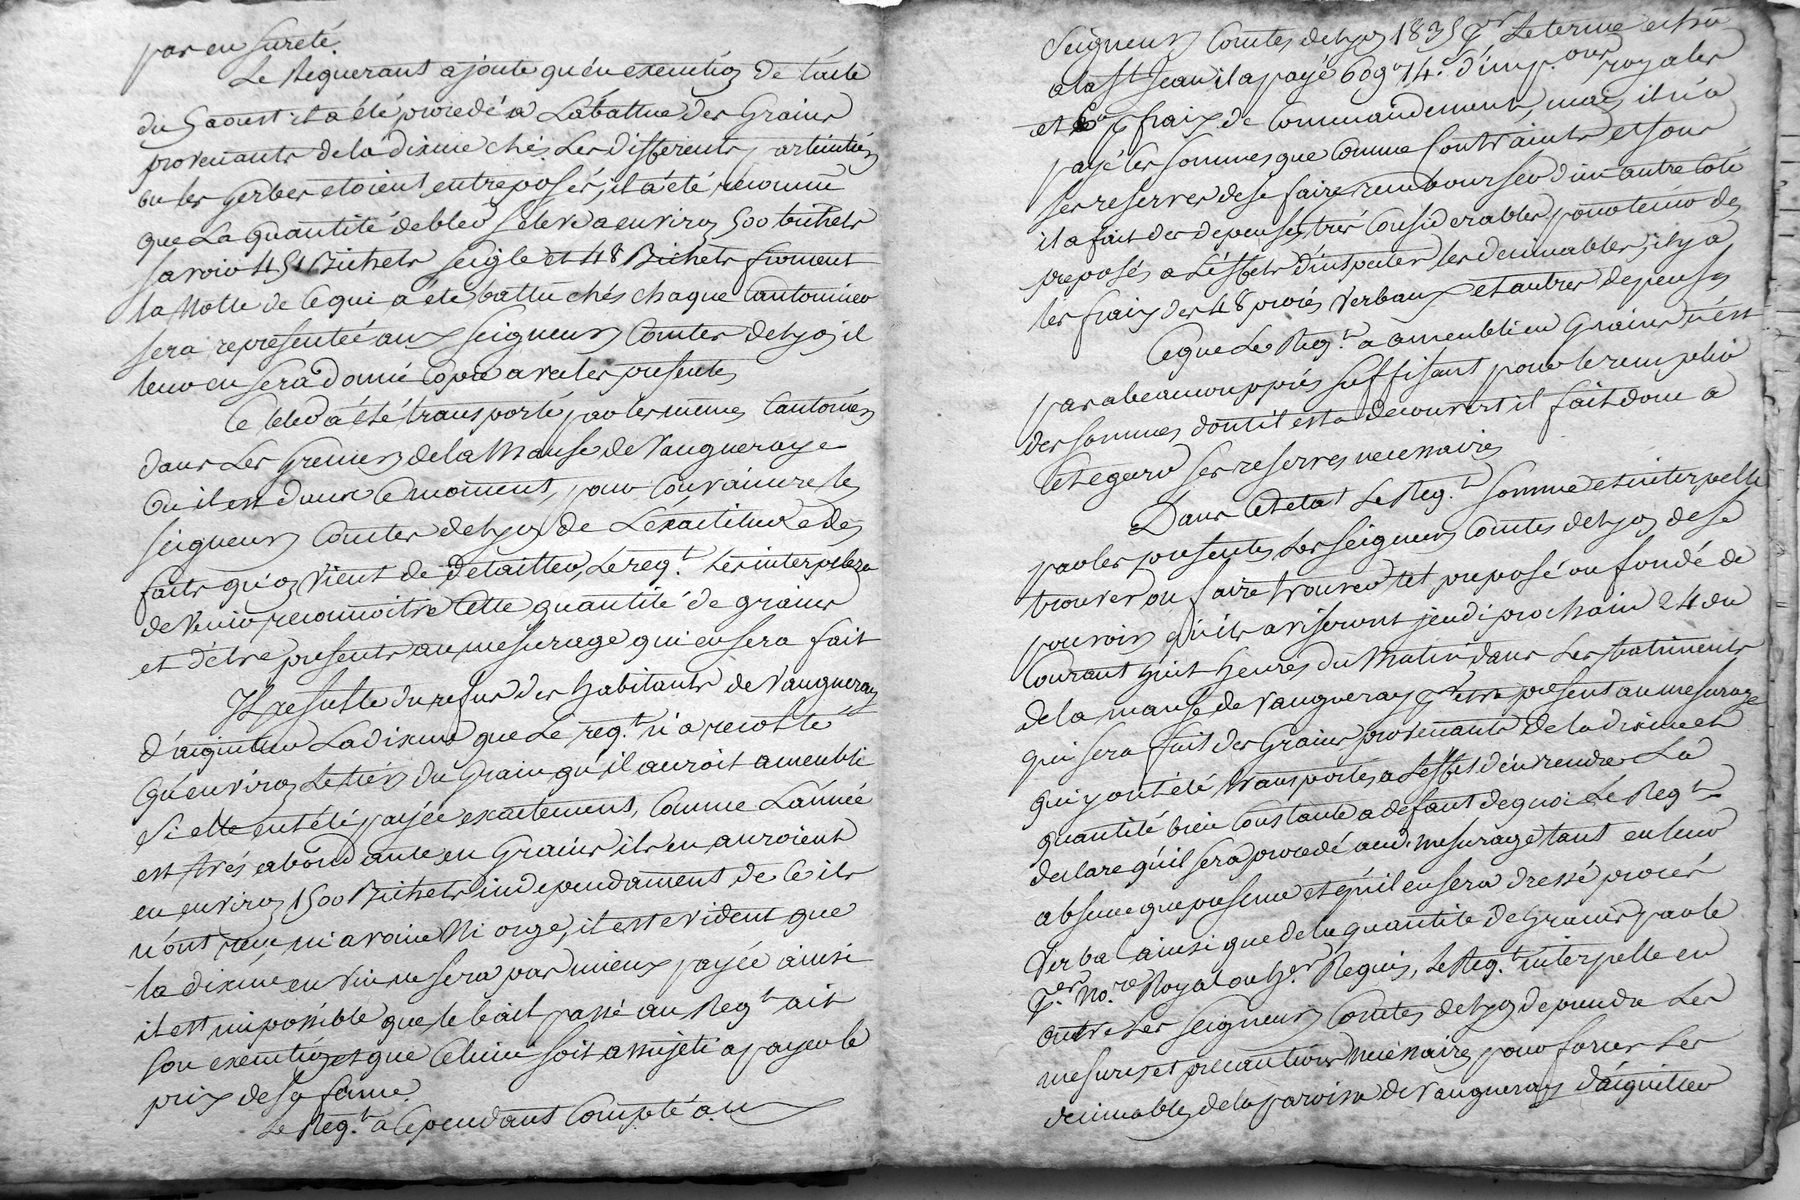 pas en sureté.
Le Requerant ajoute qu'en execution de l'acte
du 5 aoust il a été procedé a La battue des Grains
provenants de la dixme chés Les differents particuliers
ou les Gerbes etoient entreposés, il a été reconnu
que La quantité de bled s'eleve a environ 500 bichets
savoir 451 Bichets seigle et 48 Bichets froment
la Notte de Ce qui a été battu chés chaque Cantonnier
sera representée aux seigneurs Comtes de Lyon il
leur en sera donné Copie avec les presentes
Ce bled a été transporté par les memes Cantoniers
dans Les Greniers de la Manse de Vaugneray
Ou il est dans Ce moment, pour Convaincre les
seigneurs Comtes de Lyon de L'exactitude des
faits qu'on Vient de detailler, Le req.t Les interpelle
de Venir reconnoitre Cette quantité de grains
et d'etre presents au mesurage qui en sera fait
Il resulte du refus des habitants de Vaugneray
d'aquitter La dixme que Le req.t n'a recolté
Qu'environ Le tiers du Grain qu'il auroit ameubli
Si elle eut été payée exactement, Comme L'année
est trés abondante en Grains ils en auroient
eu environ 1500 Bichets independament de Ce ils
n'ont reçu ni avoine Ni orge, il est evident que
la dixme en vin ne sera pas mieux payée ainsi
il est impossible que le bail passé au Req.t ait
son execution et que Celuici soit assujeti a payer le
prix de sa ferme.
Le Req.t a Cependant Compté aux
Seigneurs Comtes de Lyon 1835# p.r Le terme echu
a la St Jean il a payé 609# 14s d'imp.ons royales
et frais de Commandement, mais il n'a
payé les sommes que Comme Contraints et sous
ses reserves de se faire rembourser d'un autre Coté
il a fait des depenses trés Considerables pour tenir des
preposés a L'effet d'inspecter les decimables, il y a
les fraix des 48 procés Verbaux et autres depenses
Ce que Le Req.t a ameubli en Grains n'est
pas a beaucoup prés suffisant pour le remplir
des sommes dont il est a decouvert il fait donc a
Cet egard ses reserves necessaires
Dans Cet etat Le Req.t somme et interpelle
par les presentes Les seigneurs Comtes de Lyon de se
trouver ou faire trouver tel preposé ou fondé de
pouvoirs qu'ils aviseront jeudi prochain 24 du
Courant huit heures du Matin dans Les batiments
de la manse de Vaugneray p.r etre present au mesurage
qui sera fait des Grains provenants de la dixme et
qui y ont été transportés, a L'effet d'en rendre La
quantité bien Constante a defaut de quoi Le Req.t
declare qu'il sera procedé aud. mesurage tant en leur
absence que presence et qu'il en sera dressé procés
Verbal ainsi que de la quantité de Grains par le
p.er No.re Royal ou h.er Requis, Le Req.t interpelle en
outre Les seigneurs Comtes de Lyon de prendre Les
mesures et precautions necessaires pour forcer Les
decimables de la paroisse de Vaugneray d'aquitter